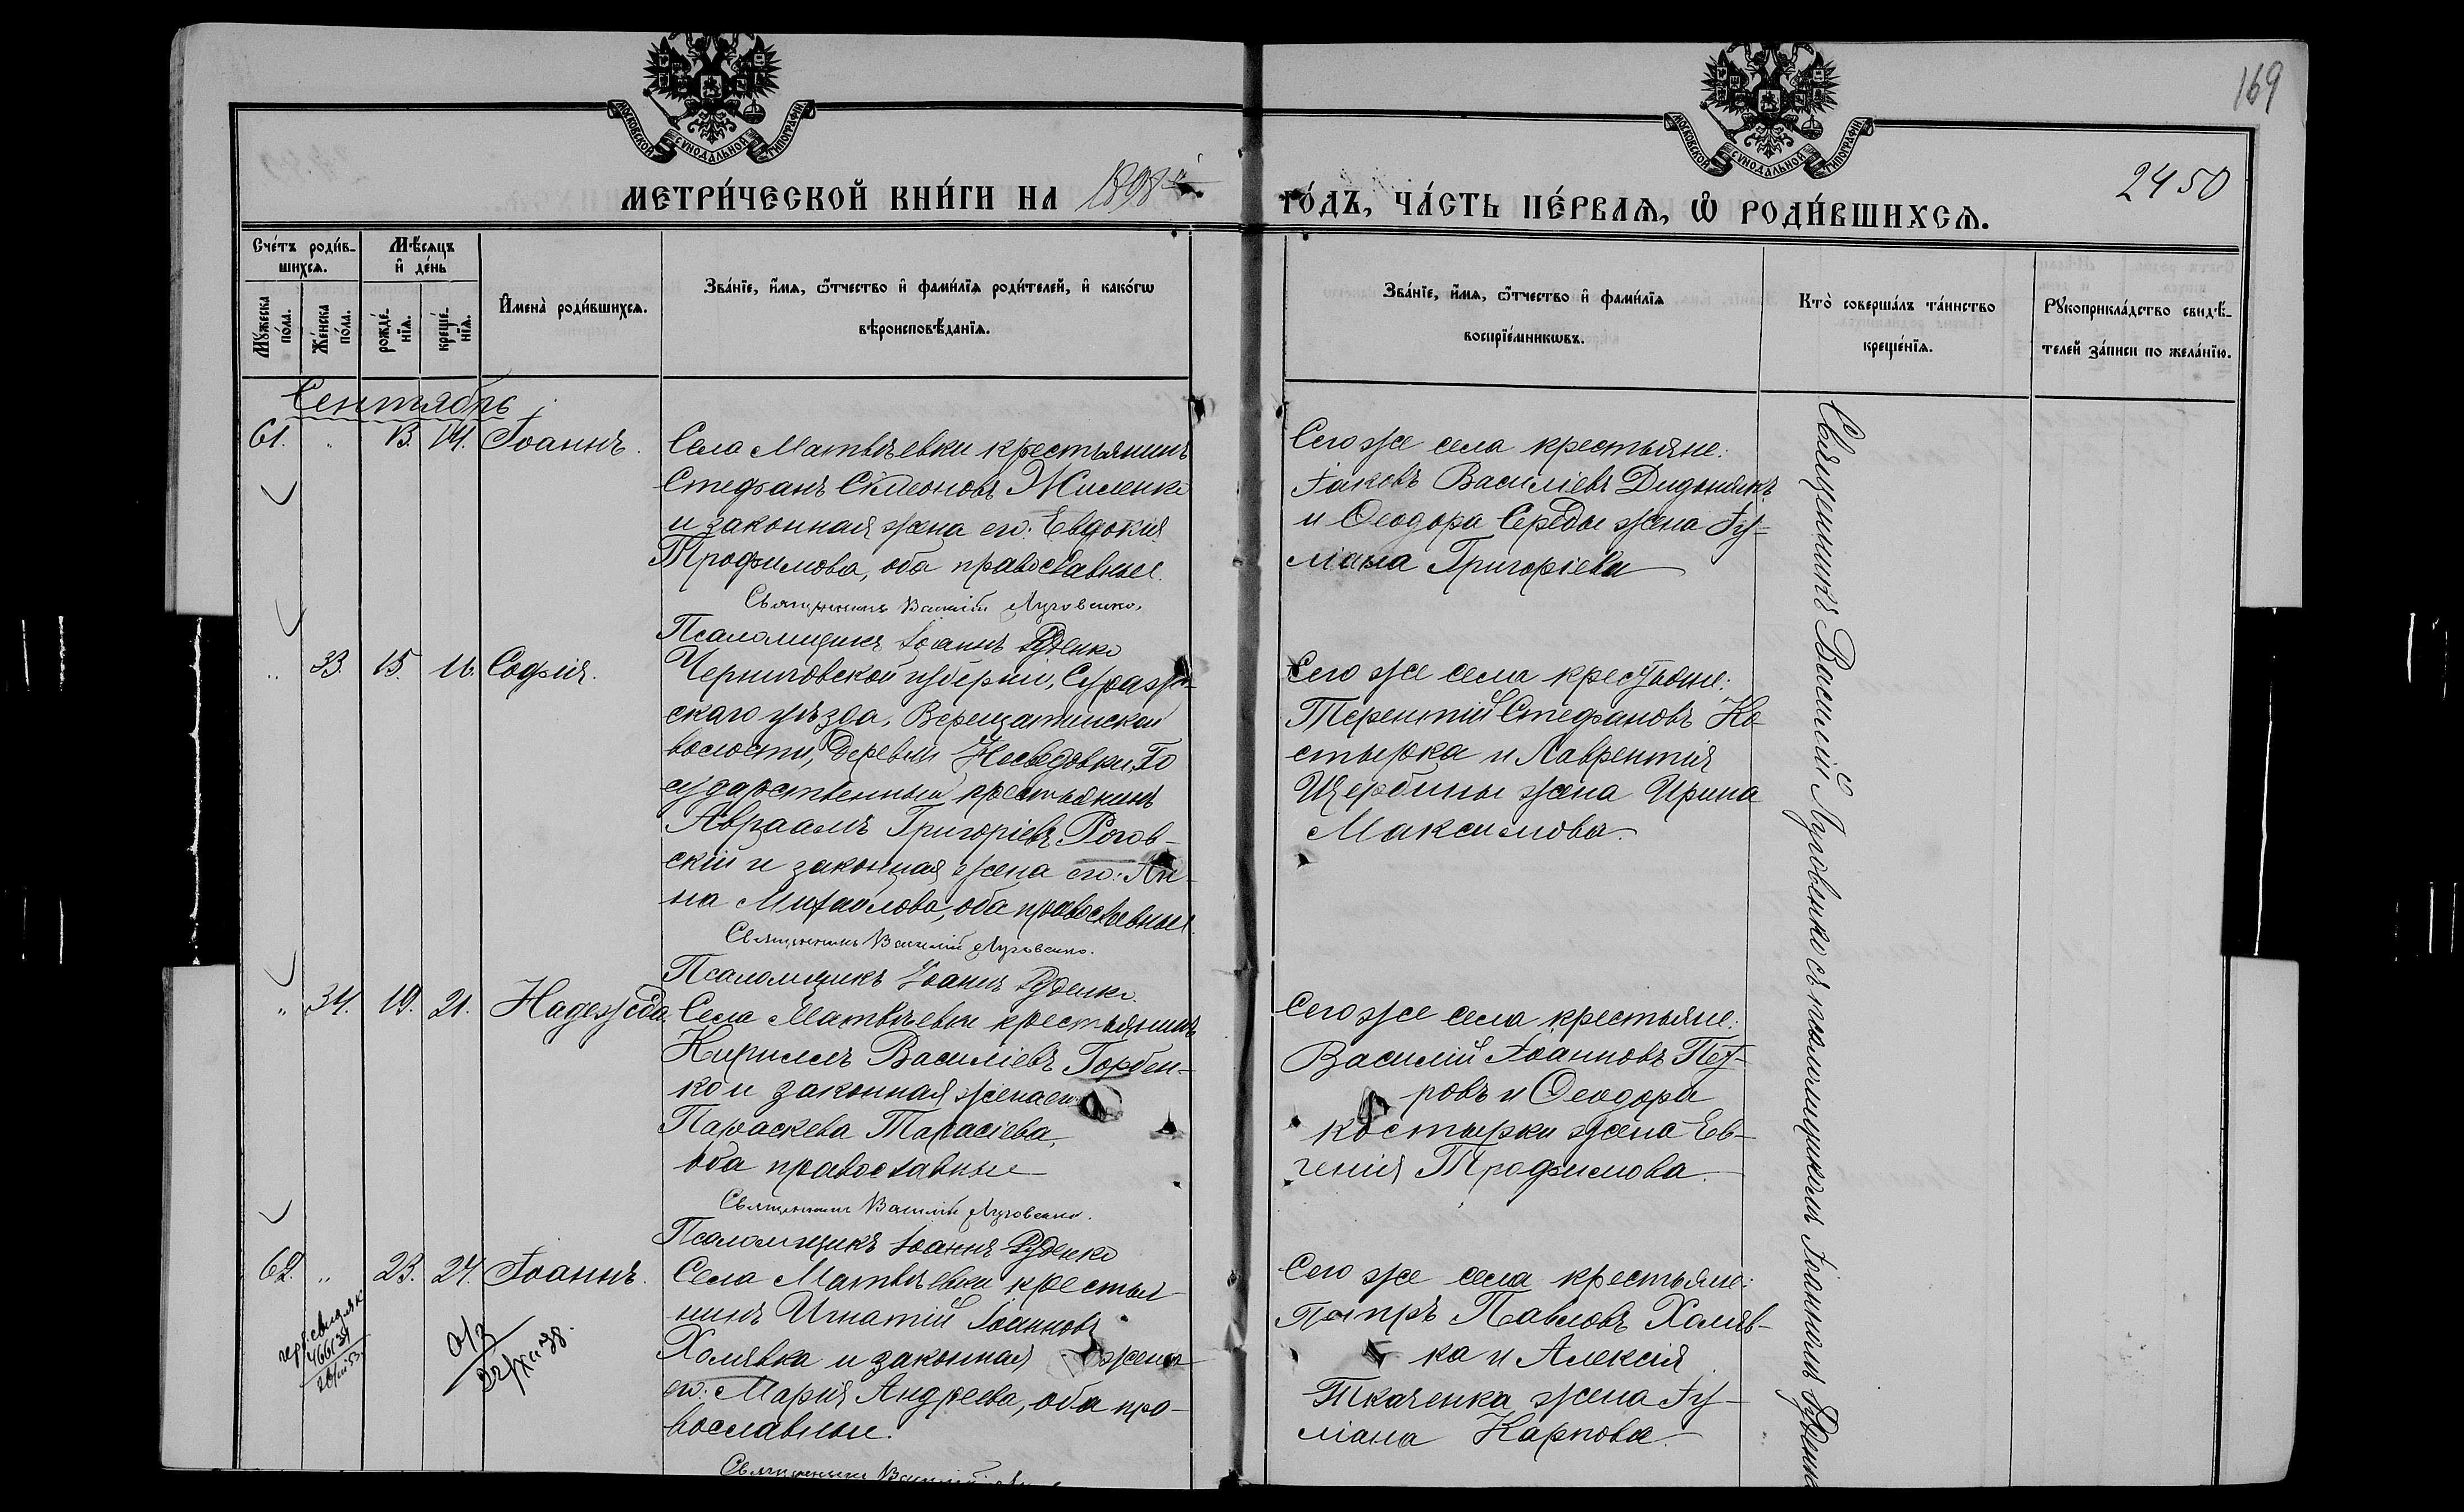 169
2450
МОСКОВСКОЙ СУНОДАЛЬНОЙ ТИПОГРАФІИ
МОСКОВСКОЙ СУНОДАЛЬНОЙ ТИПОГРАФІИ
МЕТРИ́ЧЕСКОЙ КНИ́ГИ НА 1898й
ГО́ДЪ, ЧА́СТЬ ПЕ́РВАѦ, Ѡ҆ РОДИ́ВШИХСѦ.
Сче́тъ роди́в-
шихсѧ.
Мѣ́сѧцъ
и҆ де́нь
Мꙋ́жеска
по́ла.
Же́нска
по́ла.
рожде́-
нїѧ.
креще́-
нїѧ.
И҆мена̀ роди́вшихсѧ.
Зва́нїе, и҆́мѧ, ѻ҆́тчество и҆ фами́лїѧ роди́телей, и҆ како́гѡ
вѣроисповѣ́данїѧ.
Зва́нїе, и҆́мѧ, ѻ҆́тчество и҆ фами́лїѧ
воспрїе́мникѡвъ.
Кто̀ соверша́лъ та́инство
креще́нїѧ.
Рꙋкоприкла́дство свидѣ́-
телей за́писи по жела́нїю.
Сентябрь
61. " 13. 14. Іоаннъ.
Села Матвѣевки крестьянинъ
Стефанъ Сѵмеоновъ Жиленко
и законная жена его: Евдокія
Трофимова, оба православные.
Священникъ Василій Луговенко.
Псаломщикъ Іоаннъ Руденко
Сего же села крестьяне:
Іаковъ Василіевъ Дидонякъ
и Ѳеодора Середы жена Іу-
ліана Григоріева
" 33. 15. 16. Софія.
Черниговской губерніи, Сураж-
скаго уѣзда, Верещатинской
волости, деревни Несведовки, Го
сударственный крестьянинъ
Авраамъ Григоріевъ Рогов-
скій и законная жена его: Ан-
на Михаилова, оба православные.
Священникъ Василій Луговенко.
Псаломщикъ Іоаннъ Руденко.
Сего же села крестьяне:
Терентій Стефановъ Ко-
стырка и Лаврентія
Щербины жена Ирина
Максимова.
" 34. 19. 21. Надежда.
Села Матвѣевки крестьянинъ
Кириллъ Василіевъ Горбен-
ко и законная жена его
Параскева Тарасіева,
оба православные
Священникъ Василій Луговенко.
Псаломщикъ Іоаннъ Руденко
Сего же села крестьяне:
Василій Іоанновъ Пет-
ровъ и Ѳеодора
Костырки жена Ев-
генія Трофимова.
62. " 23. 24. Іоаннъ.
Села Матвѣевки крестья-
нинъ Игнатій Іоанновъ
Холявка и законная жена
его: Марія Андреева, оба пра-
вославные.
Священникъ Василій
Сего же села крестьяне:
Петръ Павловъ Холяв-
ка и Алексія
Ткаченка жена Іу-
ліана Карпова.
Священникъ Василій Луговенко съ псаломщикомъ Іоанномъ Руденко